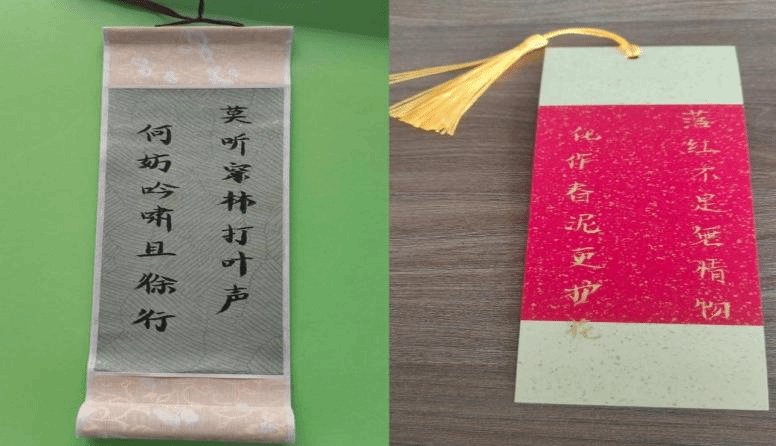 莫听穿林打叶声
何妨吟啸且徐行
落红不是無情物
化作春泥更护花